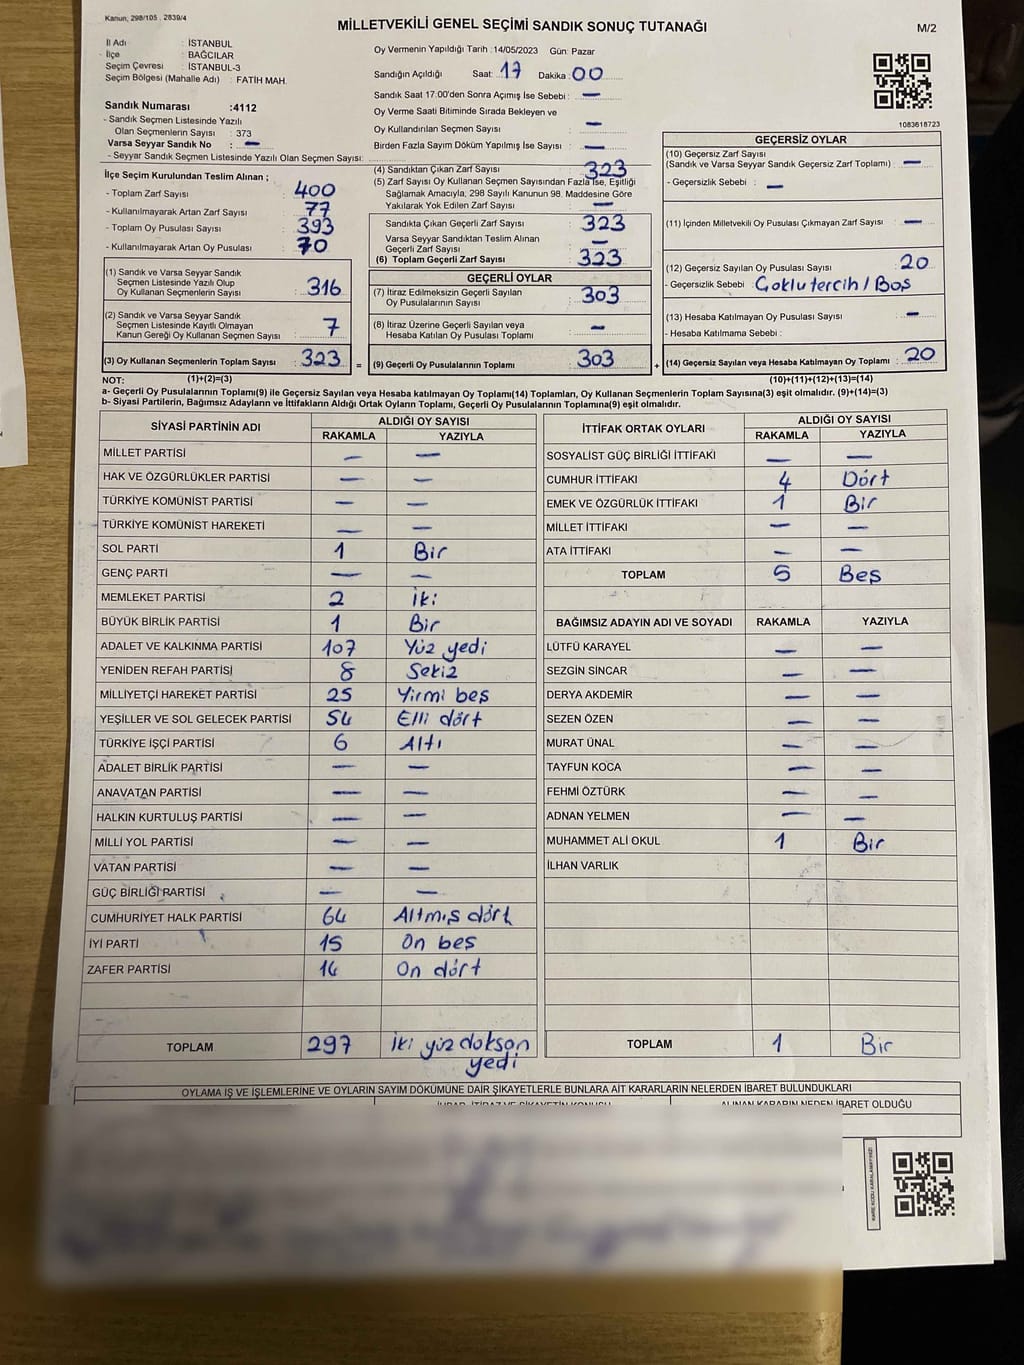 Kanun; 298/105 . 2839/4
MİLLETVEKİLİ GENEL SEÇİMİ SANDIK SONUÇ TUTANAĞI
M/2
İl Adı : İSTANBUL
İlçe : BAĞCILAR
Seçim Çevresi : İSTANBUL-3
Seçim Bölgesi (Mahalle Adı) : FATİH MAH.
Sandık Numarası :4112
- Sandık Seçmen Listesinde Yazılı
Olan Seçmenlerin Sayısı : 373
Varsa Seyyar Sandık No : —
- Seyyar Sandık Seçmen Listesinde Yazılı Olan Seçmen Sayısı:
Oy Vermenin Yapıldığı Tarih : 14/05/2023 Gün: Pazar
Sandığın Açıldığı Saat: 17 Dakika : 00
Sandık Saat 17.00'den Sonra Açımış İse Sebebi : —
Oy Verme Saati Bitiminde Sırada Bekleyen ve
Oy Kullandırılan Seçmen Sayısı : —
Birden Fazla Sayım Döküm Yapılmış İse Sayısı : —
1083618723
İlçe Seçim Kurulundan Teslim Alınan ;
- Toplam Zarf Sayısı : 400
- Kullanılmayarak Artan Zarf Sayısı : 77
- Toplam Oy Pusulası Sayısı : 393
- Kullanılmayarak Artan Oy Pusulası : 70
(1) Sandık ve Varsa Seyyar Sandık
Seçmen Listesinde Yazılı Olup
Oy Kullanan Seçmenlerin Sayısı : 316
(2) Sandık ve Varsa Seyyar Sandık
Seçmen Listesinde Kayıtlı Olmayan
Kanun Gereği Oy Kullanan Seçmen Sayısı : 7
(3) Oy Kullanan Seçmenlerin Toplam Sayısı : 323 =
(4) Sandıktan Çıkan Zarf Sayısı : 323
(5) Zarf Sayısı Oy Kullanan Seçmen Sayısından Fazla İse, Eşitliği
Sağlamak Amacıyla, 298 Sayılı Kanunun 98. Maddesine Göre
Yakılarak Yok Edilen Zarf Sayısı : —
Sandıkta Çıkan Geçerli Zarf Sayısı : 323
Varsa Seyyar Sandıktan Teslim Alınan
Geçerli Zarf Sayısı : —
(6) Toplam Geçerli Zarf Sayısı : 323
GEÇERLİ OYLAR
(7) İtiraz Edilmeksizin Geçerli Sayılan
Oy Pusulalarının Sayısı : 303
(8) İtiraz Üzerine Geçerli Sayılan veya
Hesaba Katılan Oy Pusulası Toplamı : —
(9) Geçerli Oy Pusulalarının Toplamı : 303 +
GEÇERSİZ OYLAR
(10) Geçersiz Zarf Sayısı
(Sandık ve Varsa Seyyar Sandık Geçersiz Zarf Toplamı) : —
- Geçersizlik Sebebi : —
(11) İçinden Milletvekili Oy Pusulası Çıkmayan Zarf Sayısı : —
(12) Geçersiz Sayılan Oy Pusulası Sayısı : 20
- Geçersizlik Sebebi : Çoklu tercih / Boş
(13) Hesaba Katılmayan Oy Pusulası Sayısı : —
- Hesaba Katılmama Sebebi :
(14) Geçersiz Sayılan veya Hesaba Katılmayan Oy Toplamı : 20
NOT: (1)+(2)=(3) (10)+(11)+(12)+(13)=(14)
a- Geçerli Oy Pusulalarının Toplamı(9) ile Geçersiz Sayılan veya Hesaba katılmayan Oy Toplamı(14) Toplamları, Oy Kullanan Seçmenlerin Toplam Sayısına(3) eşit olmalıdır. (9)+(14)=(3)
b- Siyasi Partilerin, Bağımsız Adayların ve İttifakların Aldığı Ortak Oyların Toplamı, Geçerli Oy Pusulalarının Toplamına(9) eşit olmalıdır.
SİYASİ PARTİNİN ADI ALDIĞI OY SAYISI
RAKAMLA YAZIYLA
MİLLET PARTİSİ — —
HAK VE ÖZGÜRLÜKLER PARTİSİ — —
TÜRKİYE KOMÜNİST PARTİSİ — —
TÜRKİYE KOMÜNİST HAREKETİ — —
SOL PARTİ 1 Bir
GENÇ PARTİ — —
MEMLEKET PARTİSİ 2 İki
BÜYÜK BİRLİK PARTİSİ 1 Bir
ADALET VE KALKINMA PARTİSİ 107 Yüz yedi
YENİDEN REFAH PARTİSİ 8 Sekiz
MİLLİYETÇİ HAREKET PARTİSİ 25 Yirmi beş
YEŞİLLER VE SOL GELECEK PARTİSİ 54 Elli dört
TÜRKİYE İŞÇİ PARTİSİ 6 Altı
ADALET BİRLİK PARTİSİ — —
ANAVATAN PARTİSİ — —
HALKIN KURTULUŞ PARTİSİ — —
MİLLİ YOL PARTİSİ — —
VATAN PARTİSİ — —
GÜÇ BİRLİĞİ PARTİSİ — —
CUMHURİYET HALK PARTİSİ 64 Altmış dört
İYİ PARTİ 15 On beş
ZAFER PARTİSİ 14 On dört
TOPLAM 297 İki yüz doksan
yedi
İTTİFAK ORTAK OYLARI ALDIĞI OY SAYISI
RAKAMLA YAZIYLA
SOSYALİST GÜÇ BİRLİĞİ İTTİFAKI — —
CUMHUR İTTİFAKI 4 Dört
EMEK VE ÖZGÜRLÜK İTTİFAKI 1 Bir
MİLLET İTTİFAKI — —
ATA İTTİFAKI — —
TOPLAM 5 Beş
BAĞIMSIZ ADAYIN ADI VE SOYADI RAKAMLA YAZIYLA
LÜTFÜ KARAYEL — —
SEZGİN SİNCAR — —
DERYA AKDEMİR — —
SEZEN ÖZEN — —
MURAT ÜNAL — —
TAYFUN KOCA — —
FEHMİ ÖZTÜRK — —
ADNAN YELMEN — —
MUHAMMET ALİ OKUL 1 Bir
İLHAN VARLIK
TOPLAM 1 Bir
OYLAMA İŞ VE İŞLEMLERİNE VE OYLARIN SAYIM DÖKÜMÜNE DAİR ŞİKAYETLERLE BUNLARA AİT KARARLARIN NELERDEN İBARET BULUNDUKLARI
ALINAN KARARIN NEDEN İBARET OLDUĞU